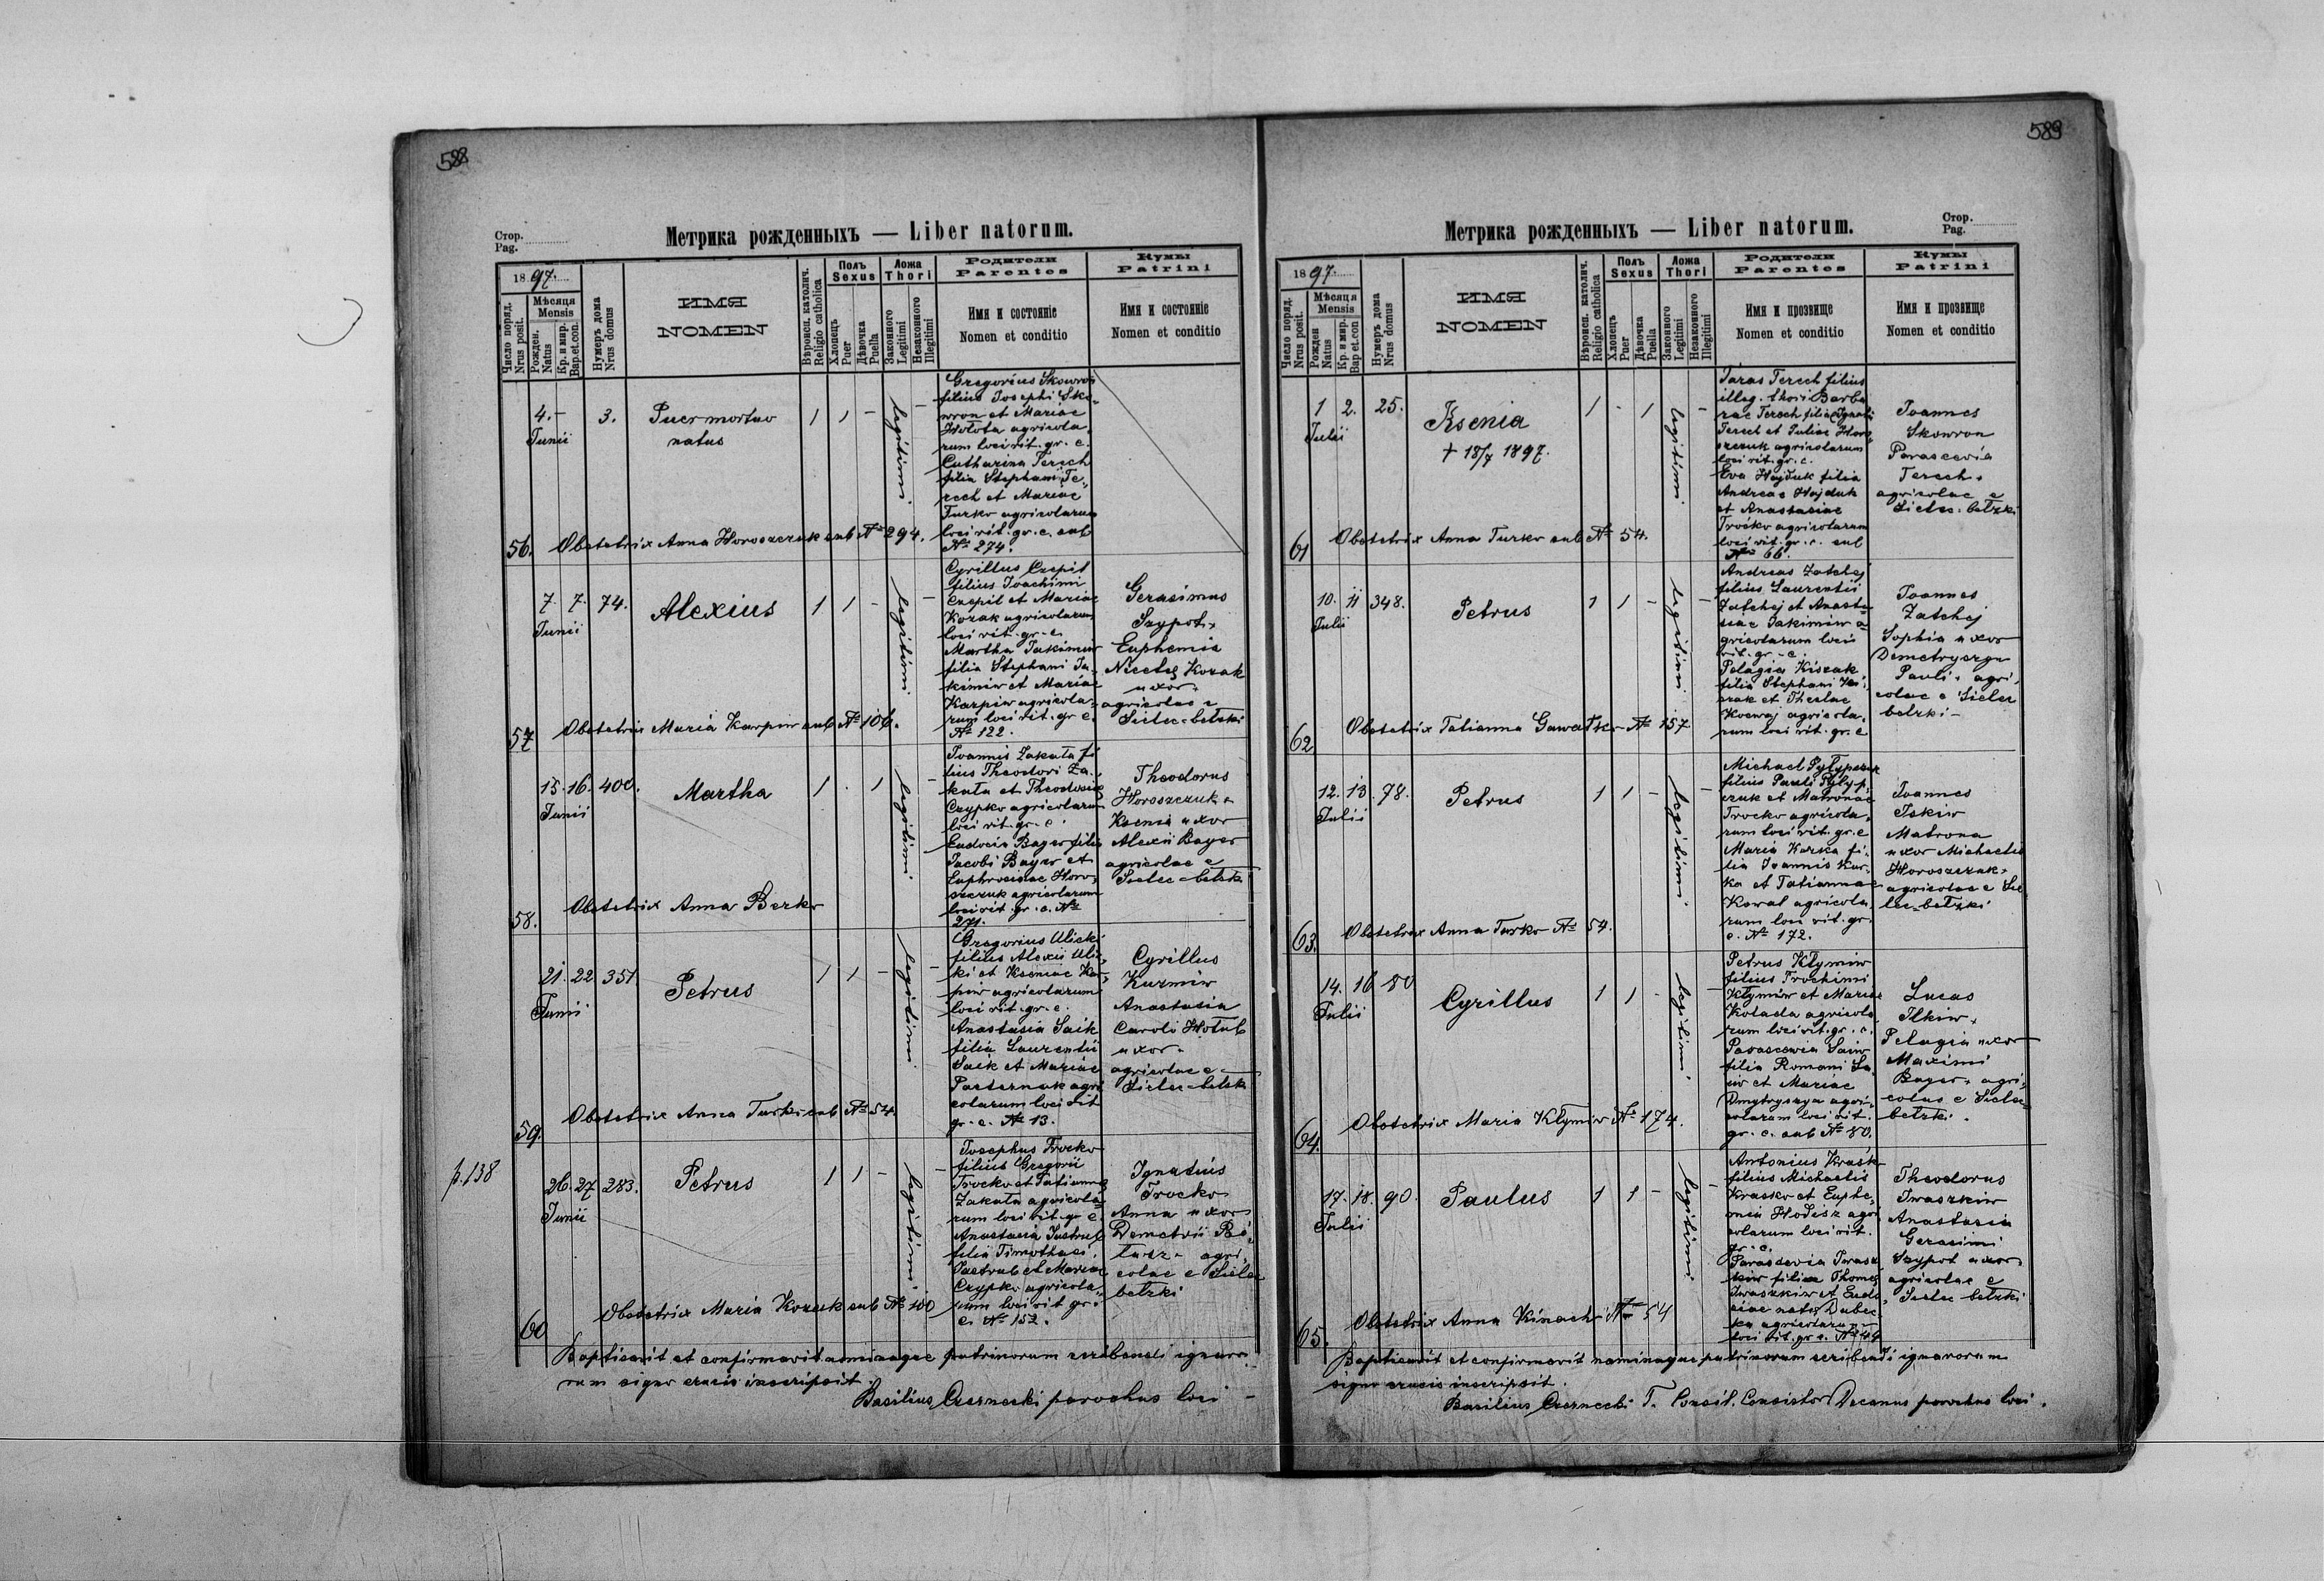 588
Стор.
Pag.
Метрика рожденныхъ — Liber natorum.
1897.
Число поряд.
Nrus posit.
Мѣсяця
Mensis
Рожден.
Natus
Кр. и мир.
Bap.et.con.
Нумеръ дома
Nrus domus
ИМЯ
NOMEN
Вѣроисп. католич.
Religio catholica
Полъ
Sexus
Хлопець
Puer
Дѣвочка
Puella
Ложа
Thori
Законного
Legitimi
Незаконного
Illegitimi
Родители
Parentes
Имя и состоянiе
Nomen et conditio
Кумы
Patrini
Имя и состоянiе
Nomen et conditio
56.
4. -
Junii
3.
Puer mortuo
natus
1 1 -
legitimi
-
Gregorius Skowron
filius Josephi Sko-
wron et Mariae
Hołota agricola-
rum loci rit. gr. c.
Catharina Terech
filia Stephani Te-
rech et Mariae
Turko agricolarum
loci rit. gr. c. sub
№ 274.
Obstetrix Anna Horoszczuk sub № 294.
57
7. 7.
Junii
74.
Alexius
1 1 -
legitimi
-
Cyrillus Czepil
filius Joachimi
Czepil et Mariae
Kozak agricolarum
loci rit. gr. c.
Martha Jakimiw
filia Stephani Ja-
kimiw et Mariae
Karpiw agricola-
rum loci rit. gr c.
№ 122.
Gerasimus
Szypot +
Euphemia
Nicetae Kozak
uxor +
agricolae e
Sielec-bełzki
Obstetrix Maria Karpiw sub № 106.
58.
15. 16.
Junii
400.
Martha
1 . 1
legitimi
-
Joannis Zakała fi
lius Theodori Za-
kała et Theodosiae
Czypko agricolarum
loci rit. gr. c.
Eudocia Bayer filia
Jacobi Bayer et
Euphrosinae Horo-
szczuk agricolarum
loci rit. gr. c. №
271.
Theodorus
Horoszczuk +
Ksenia uxor
Alexii Bayer
agricolae e
Sielec-bełzki
Obstetrix Anna Berko
59.
21. 22
Junii
351
Petrus
1 1 -
legitimi
-
Gregorius Ulicki
filius Alexii Ulic-
ki et Kseniae Kar-
piw agricolarum
loci rit. gr. c.
Anastasia Saik
filia Laurentii
Saik et Mariae
Pasternak agri
colarum loci rit
gr. c. № 13.
Cyrillus
Kuzmiw
Anastasia
Caroli Hołub
uxor +
agricolae e
Sielec-bełzk
Obstetrix Anna Turko sub № 54.
p. 138
60
26. 27
Junii
283.
Petrus
1 1 -
legitimi
-
Josephus Trocko
filius Gregorii
Trocko et Tatiannae
Zakała agricola-
rum loci rit. gr c.
Anastasia Jastrub
filia Timothaei
Jastrub et Mariae
Czypko agricola-
rum loci rit gr.
c. № 152.
Ignatius
Trocko
Anna uxor
Demetrii
agri-
colae e Sielec
bełzki
Obstetrix Maria Kozak sub № 100
Baptisavit et confirmavit nominaque patrinorum scribendi ignaro-
rum signo crucis inscripsit.
Basilius Czernecki parochus loci -
589
Стор.
Pag.
Метрика рожденныхъ — Liber natorum.
1897.
Число поряд.
Nrus posit.
Мѣсяця
Mensis
Рожден
Natus
Кр. и мир.
Bap et.con
Нумеръ дома
Nrus domus
ИМЯ
NOMEN
Вѣроисп. католич.
Religio catholica
Полъ
Sexus
Хлопець
Puer
Дѣвочка
Puella
Ложа
Thori
Законного
Legitimi
Незаконного
Illegitimi
Родители
Parentes
Имя и прозвище
Nomen et conditio
Кумы
Patrini
Имя и прозвище
Nomen et conditio
61
1 2.
Julii
25.
Ksenia
+ 18/7 1897.
1 - 1
legitimi
-
Taras Terech filius
illeg. thori Barba
rae Terech filia Ignatii
Terech et Juliae Horo-
szczuk agricolarum
loci rit. gr. c.
Eva Hajduk filia
Andreae Hajduk
et Anastasiae
Troćko agricolarum
loci rit. gr. c. sub
№ 66.
Joannes
Skowron
Parascevia
Terech +
agricolae e
Sielec-bełzki
Obstetrix Anna Turko sub № 54.
62
10. 11
Julii
348.
Petrus
1 1 -
legitimi
-
Andreas Zatchej
filius Laurentii
Zatchej et Anasta-
siae Jakimiw a-
gricolarum loci
rit. gr. c.
Pelagia Kiszak
filia Stephani Ki-
szak et Theclae
agricola-
rum loci rit. gr. c
Joannes
Zatchej
Sophia uxor
Demetryszyn
Pauli + agri-
colae e Sielec
bełzki -
Obstetrix Tatianna № 157
63.
12. 13.
Julii
78.
Petrus
1 1 -
legitimi
-
Michael Pyłypczuk
filius Pauli Pyłyp-
czuk et Matronae
Trocko agricola-
rum loci rit. gr. c
Maria Karka fi-
lia Joannis Kar-
ka et Tatiannae
Kowal agricola-
rum loci rit. gr.
c. № 172.
Joannes
Iśkiw
Matrona
uxor Michaelis
Horoszczuk +
agricolae e Sie
lec-bełzki
Obstetrix Anna Turko № 54.
64.
14. 16
Julii
80
Cyrillus
1 1 -
legitimi
-
Petrus Kłymiw
filius Trochimi
Kłymiw et Mariae
Kolada agricola
rum loci rit. gr. c.
Parascewia Saiw
filia Romani Sa-
iw et Mariae
Dmytryszyn agri-
colarum loci rit.
gr. c. sub № 80.
Lucas
Ilkiw +
Pelagia uxor
Maximi
Bayer + agri-
colae e Sielec
bełzki.
Obstetrix Maria Kłymiw № 174.
65.
17. 18.
Julii
90.
Paulus
1 1 -
legitimi
-
Antonius Krasko
filius Michaelis
Krasko et Euphe-
mia agri
colarum loci rit.
gr. c.
Parascevia Iwasz
kiw filiae Thomae
Iwaszkiw et Eudo
ciae natae Dubec
ka agricolarum
loci rit. gr c. № 44
Theodorus
Iwaszkiw
Anastasia
Gerasimi
Szypot uxor
agricolae e
Sielec bełzki
Obstetrix Anna Kinach № 54
Baptisavit et confirmavit nominaque patrinorum scribendi ignarorum
signo crucis inscripsit.
Basilius Czernecki T. Consil. Consistor Decanus parochus loci.